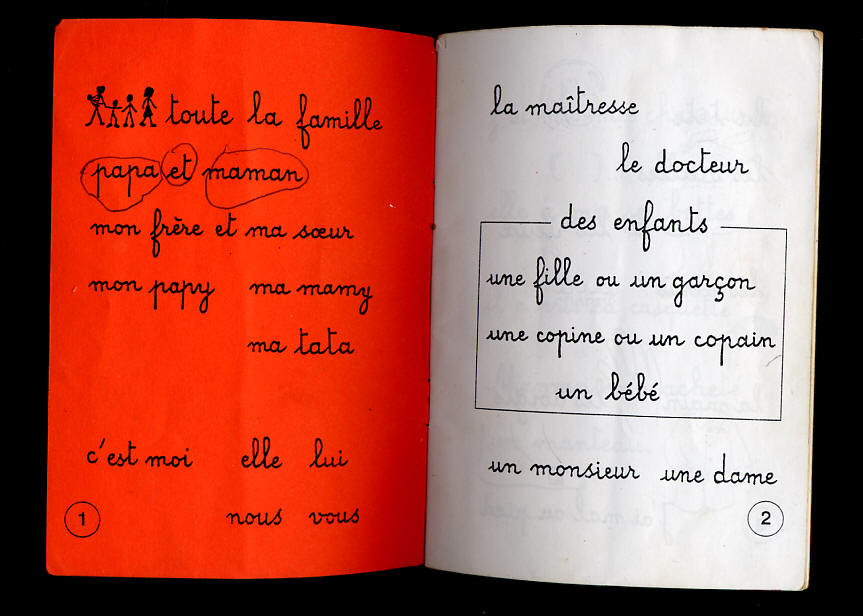 toute la famille
papa et maman
mon frère et ma sœur
mon papy ma mamy
ma tata
c'est moi elle lui
nous vous
1
la maîtresse
le docteur
des enfants
une fille ou un garçon
une copine ou un copain
un bébé
un monsieur une dame
2